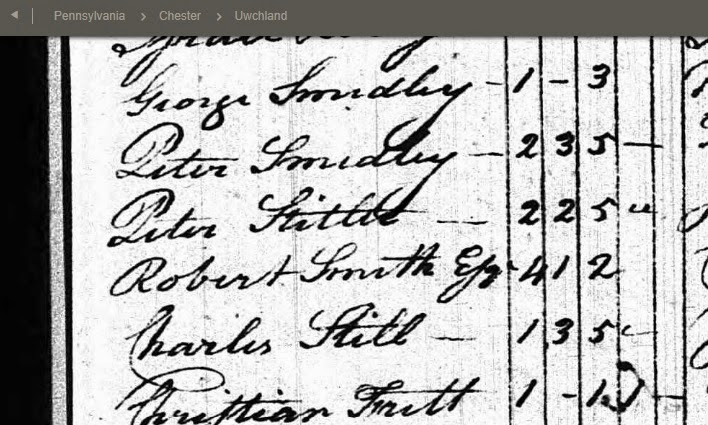 Pennsylvania > Chester > Uwchland
George Smedley - 1 - 3
Peter Smedley - 2 3 5 -
Peter Stitler - 2 2 5 "
Robert Smith Esqr - 4 1 2
Charles Still - 1 3 5 -
Christian Fritt 1 - 1